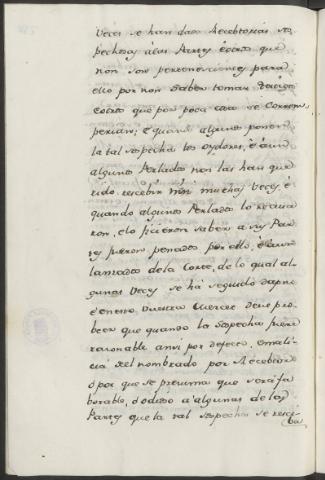 Veces se han dado Recebtorias sos
pechosas á las Partes é otrosi que
non son pertenescientes para
ello por non saber tomar
é otrosi que por poca cosa se Corrom
perian; é quando algunos ponen
la tal sospecha los oydores, é aun
algunos Perlados non las han que
rido rescebir muchas Veces, é
quando algunos Perlados lo recusa
ron, é lo ficieron saber a sus Par
tes fueron penados por ello, é aun
lanzados de la Corte, de lo qual al
gunas Veces se há seguido dapno
é Vuestra merced deve pro
beer que quando la sospecha fuere
rasonable ansi por defecto, é mali
cia del nombrado por Recebtor
ó por que se presuma que será fa
borable, ó odioso á algunas de las
Partes que la tal sospecha se resci